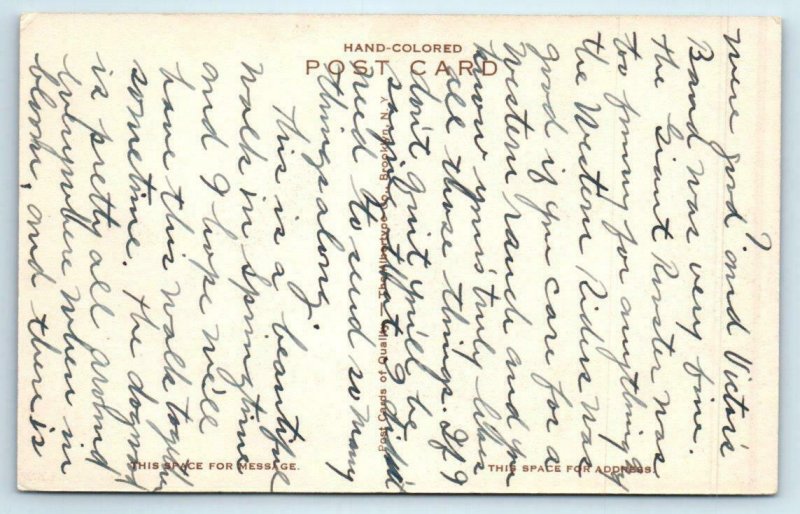 HAND-COLORED
POST CARD
were good? and Victor's
Band was very fine.
the Giant Ruster was
too funny for anything &
the Western Riders was
good if you care for a
Western ranch and you
know yours truly likes
all those things. If I
don't quit you'll be
saying that I didn't
need to send so many
things along.
This is a beautiful
walk in Springtime
and I hope we'll
have this walk together
sometime. The dogwood
is pretty all around
Everywhere when in
bloom, and there is
Post Cards of Quality. — The Albertype Co., Brooklyn, N. Y.
THIS SPACE FOR MESSAGE.
THIS SPACE FOR ADDRESS.